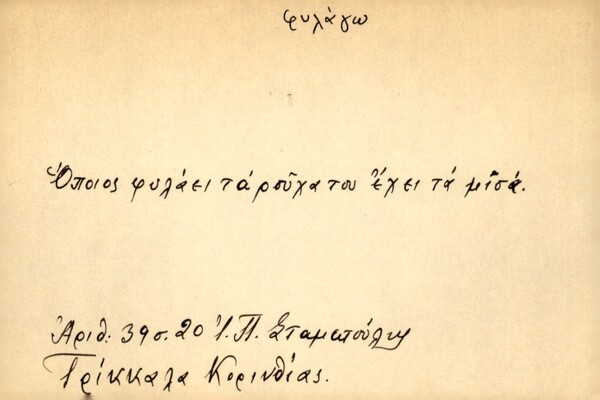 φυλάγω
Ὅποιος φυλάει τά ροῦχα του ἔχει τά μισά.
Ἀριθ: 39 σ. 20 Ἰ. Π. Σταματούλης
Τρίκκαλα Κορινθίας.